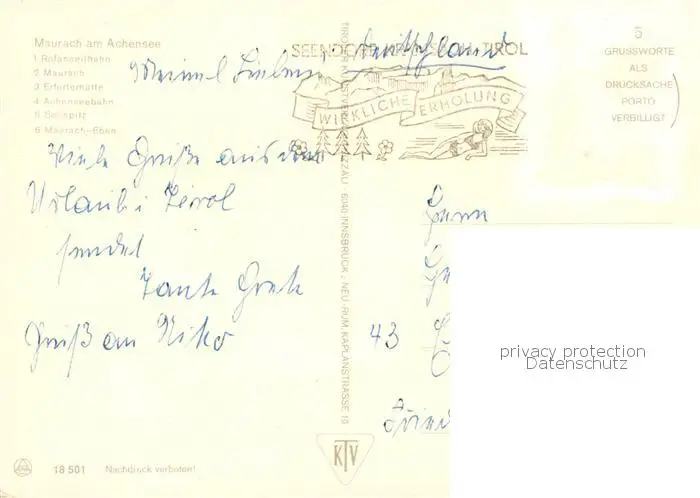 Maurach am Achensee
1 Rofanseilbahn
2 Maurach
3 Erfurterhütte
4 Achenseebahn
5 Seespitz
6 Maurach-Eben
SEENDORF TIROL
WIRKLICHE ERHOLUNG
Deutschland
5
GRUSSWORTE
ALS
DRUCKSACHE
PORTO
VERBILLIGT
Viele Grüße aus dem
Urlaub i Tirol
sendet
Tante Grete
Gruß an Niko
Herrn
43
INNSBRUCK - NEU-RUM, KAPLANSTRASSE 10
KTV
18 501 Nachdruck verboten!
privacy protection
Datenschutz